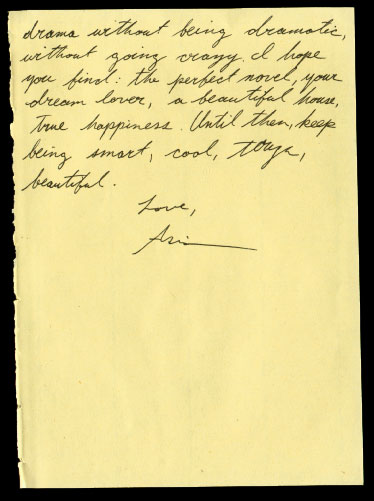 drama without being dramatic,
without going crazy. I hope
you find: the perfect novel, your
dream lover, a beautiful house,
true happiness. Until then, keep
being smart, cool, tough,
beautiful.
Love,